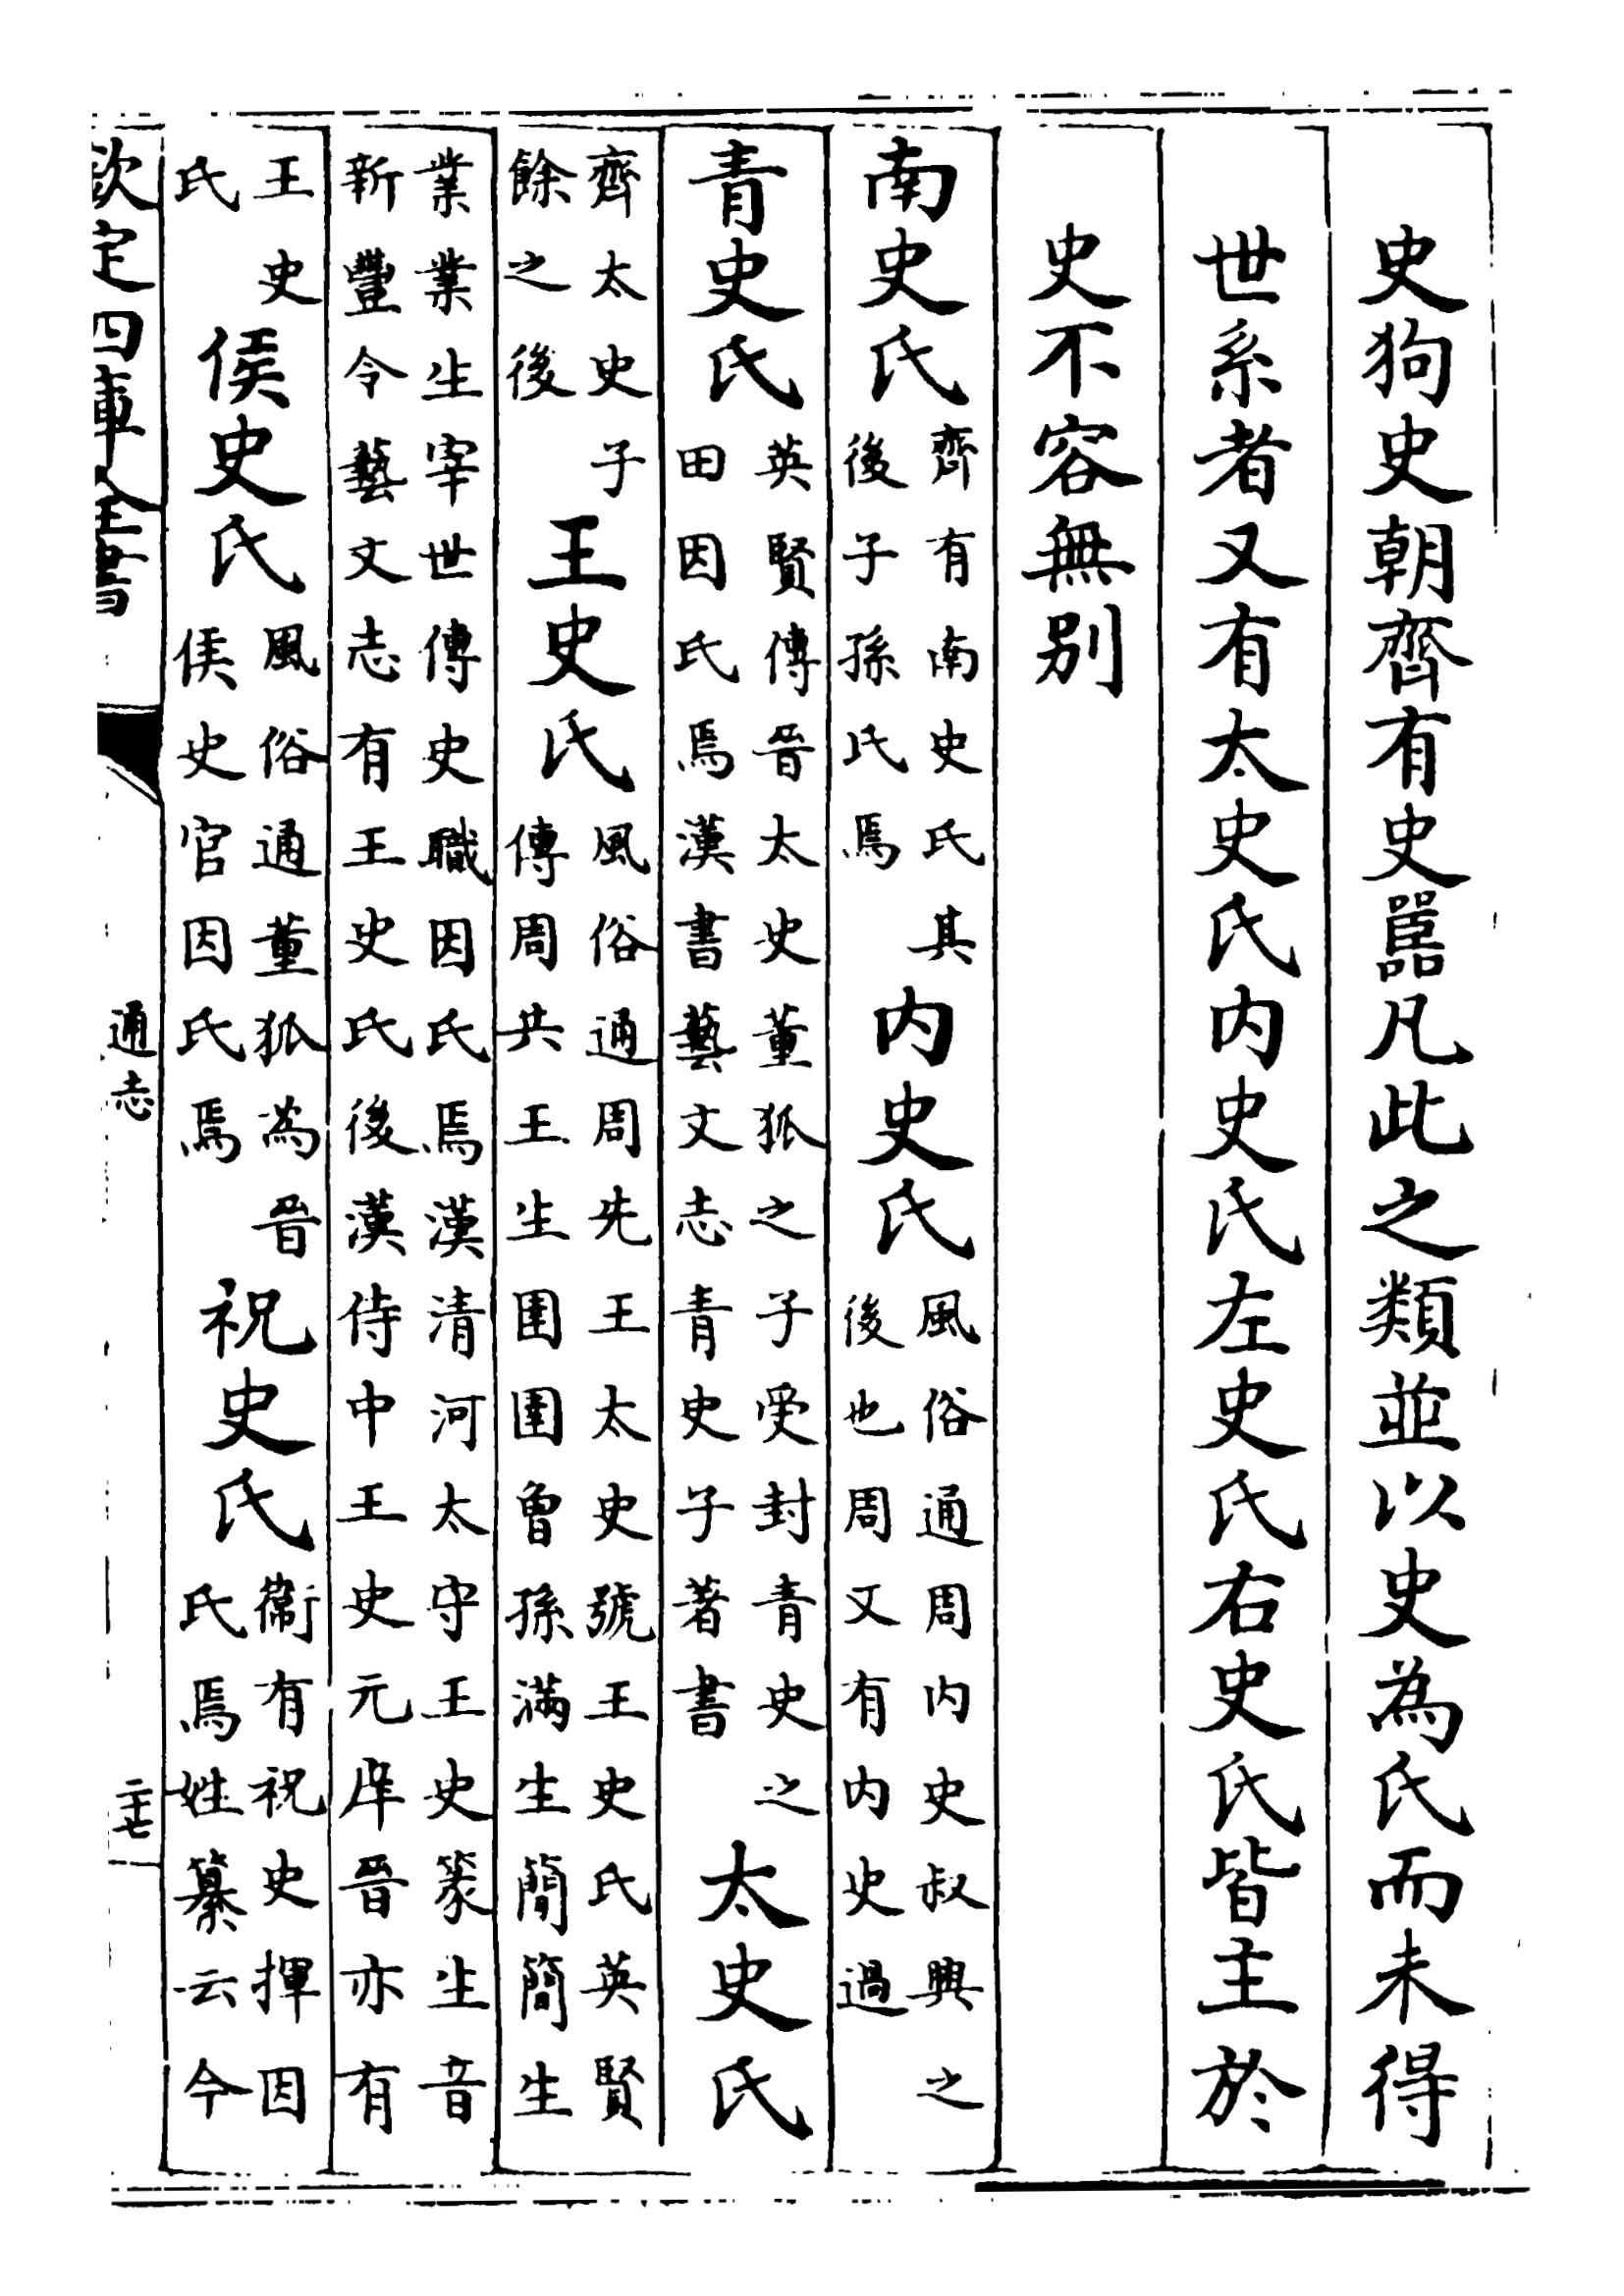 史狗史朝齊有史嚚凡此之類並以史為氏而未得
世系者又有太史氏内史氏左史氏右史氏皆主於
史不容無别
南史氏齊有南史氏其後子孫氏焉内史氏風俗通周内史叔興之後也周又有内史過
青史氏英賢傳晉太史董狐之子受封青史之田因氏焉漢書藝文志青史子著書太史氏
齊太史子餘之後王史氏風俗通周先王太史號王史氏英賢傳周共王生圉圉曾孫滿生簡簡生
業業生宰世傳史職因氏焉漢清河太守王史篆生音新豐令藝文志有王史氏後漢侍中王史元庠晉亦有
王史氏侯史氏風俗通董狐為晉侯史官因氏焉祝史氏衞有祝史揮因氏焉姓纂云今
欽定四庫全書
通志
二十七